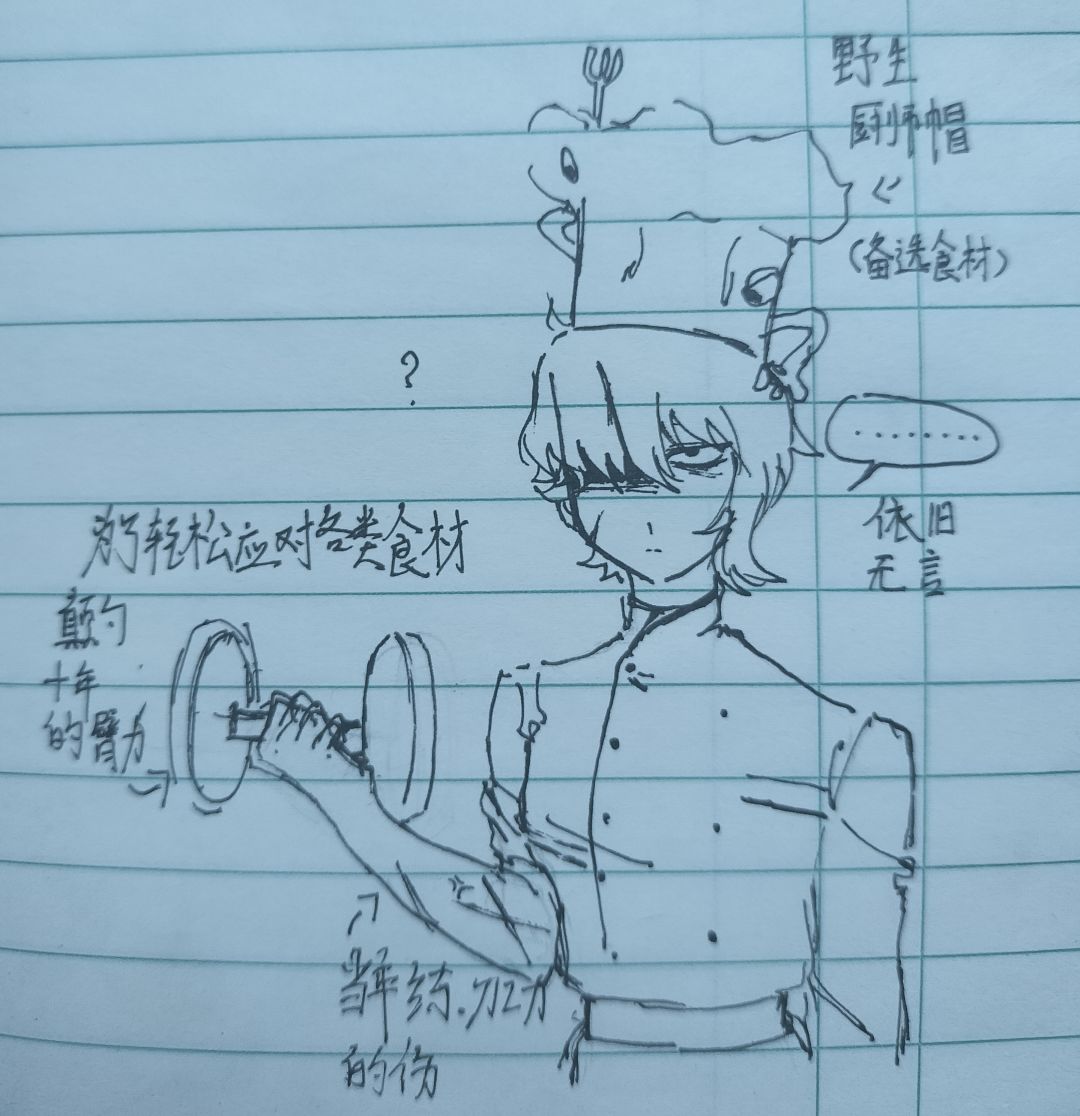 野生
厨师帽
(备选食材)
?
………
依旧
无言
为了轻松应对各类食材
颠勺
十年
的臂力
当年练刀工
的伤